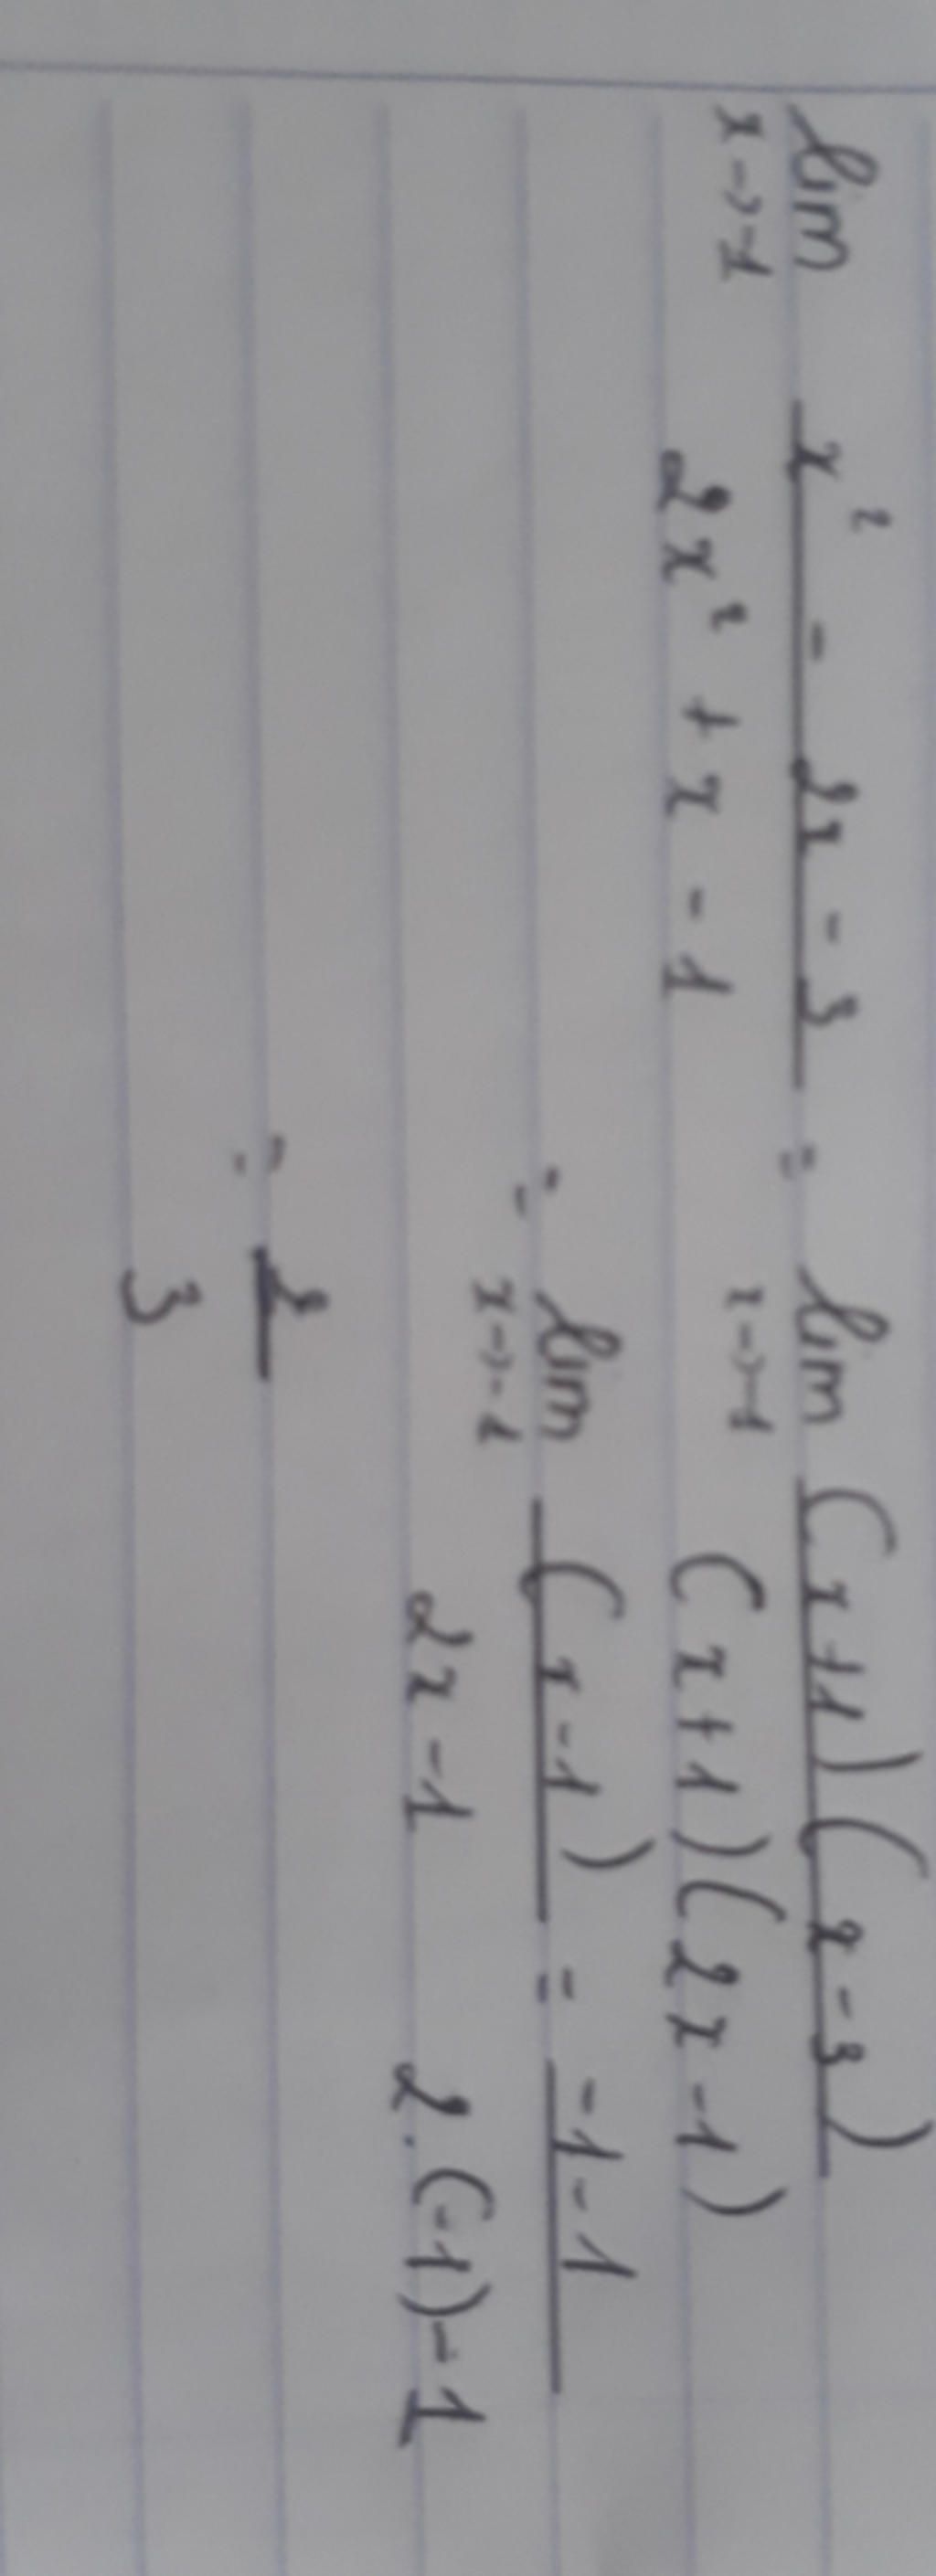 lim x→-1 (x² - 2x - 3)/(2x² + x - 1) = lim x→-1 ((x+1)(x-3))/((x+1)(2x-1))
= lim x→-1 (x-1)/(2x-1) = (-1-1)/(2.(-1)-1)
= 2/3